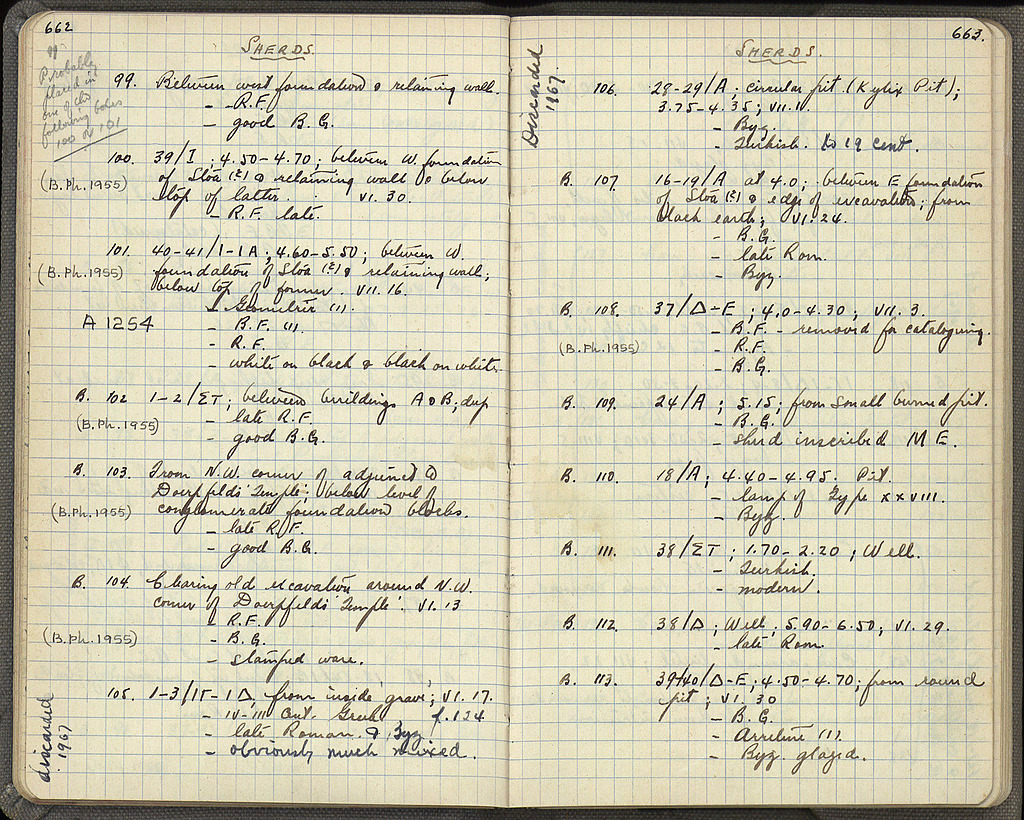 662
SHERDS.
Probably
placed in
one of the
following boxes
100 or 101
99. Between west foundation & retaining wall.
- R.F.
- good B.G.
100. 39/I ; 4.50-4.70 ; between W. foundation
(B.Ph.1955)
of Stoa (?) & retaining wall & below
top of latter. VI. 30.
- R.F. late.
101. 40-41/I-IA ; 4.60-5.50 ; between W.
(B.Ph.1955)
foundation of Stoa (?) & retaining wall;
below top of former. VII. 16.
- Geometric (1).
A 1254
- B.F. (1).
- R.F.
- white on black & black on white.
B. 102 1-2/ΣΤ ; between buildings A & B, deep
(B.Ph.1955)
- late R.F.
- good B.G.
B. 103. From N.W. corner of adjoined to
Doerpfeld's 'Temple'; below level of
(B.Ph.1955)
conglomerate foundation blocks.
- late R.F.
- good B.G.
B. 104. Clearing old excavation around N.W.
corner of Doerpfeld's 'Temple'. VI. 13
- R.F.
(B.Ph.1955)
- B.G.
- stamped ware.
105. 1-3/ΙΓ-ΙΔ, from inside 'grave'; VI. 17.
- IV-III Cent. Greek f.124.
- late Roman & Byz.
- obviously much mixed.
discarded
1967
663.
SHERDS.
Discarded
1967.
106. 28-29/A . circular pit (Kylix Pit);
3.75-4.35 ; VII.1.
- Byz.
- Turkish. to 19 cent.
B. 107. 16-19/A at 4.0 ; between E foundation
of Stoa (?) & edge of excavation; from
black earth; VI. 24.
- B.G.
- late Rom.
- Byz.
B. 108. 37/Δ-E ; 4.0-4.30 ; VII. 3.
- B.F. - removed for cataloguing.
(B.Ph.1955)
- R.F.
- B.G.
B. 109. 24/A ; 5.15 ; from small burned pit.
- B.G.
- sherd inscribed ME.
B. 110. 18/A ; 4.40-4.95. Pit.
- lamp of Type XXVIII.
- Byz.
B. 111. 38/ΣΤ ; 1.70-2.20 ; Well.
- Turkish.
- modern.
B. 112. 38/Δ ; Well ; 5.90-6.50 ; VI. 29.
- late Rom
B. 113. 39+40/Δ-E ; 4.50-4.70 ; from round
pit ; VI. 30
- B.G.
- Arretine (1).
- Byz. glazed.